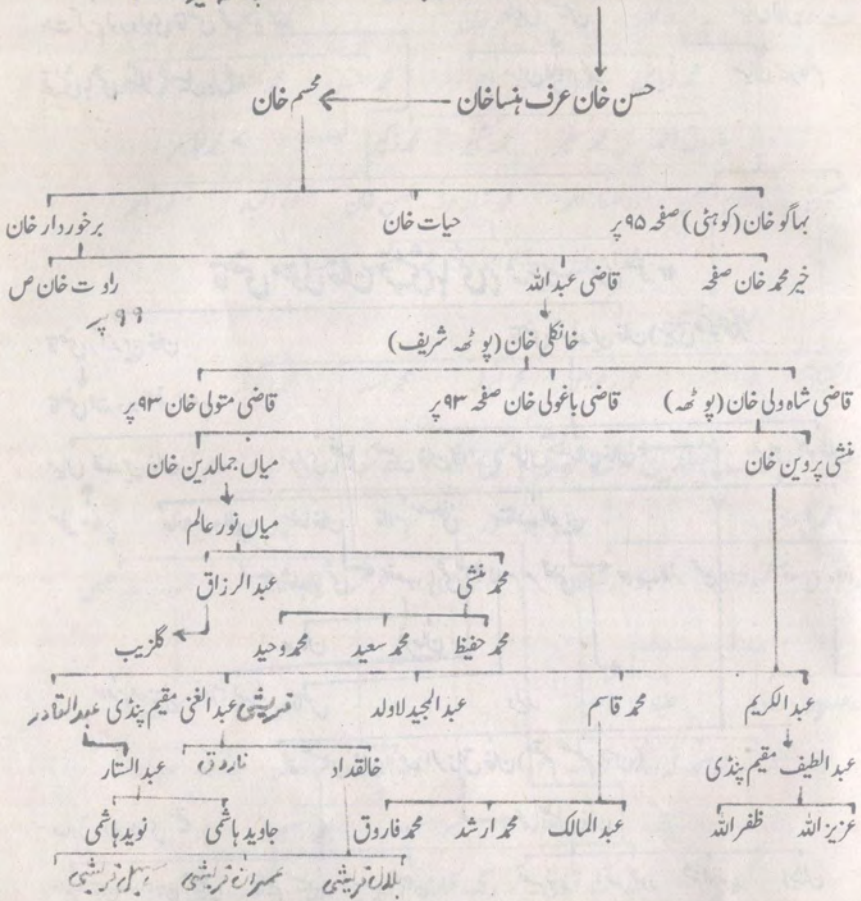 حسن خان عرف ہنساخان محسم خان
بہاگو خان (کوہٹی) صفحہ ۹۵ پر حیات خان برخوردار خان
خیر محمد خان صفحہ قاضی عبداللہ راوت خان ص
۹۹ پر
خانکلی خان (پوٹھہ شریف)
قاضی شاہ ولی خان (پوٹھہ) قاضی باغولی خان صفحہ ۹۳ پر قاضی متولی خان ۹۳ پر
منشی پروین خان میاں جمالدین خان
میاں نور عالم
محمد منشی عبدالرزاق
محمد حفیظ محمد سعید محمد وحید گلزیب
عبدالکریم محمد قاسم عبدالمجید لاولد قریشی عبدالغنی مقیم پنڈی عبدالقادر
عبدالطیف مقیم پنڈی خالقداد فاروق عبدالستار
عزیز اللہ ظفر اللہ عبدالمالک محمد ارشد محمد فاروق جاوید ہاشمی نوید ہاشمی
بلال قریشی عمران قریشی سہیل قریشی